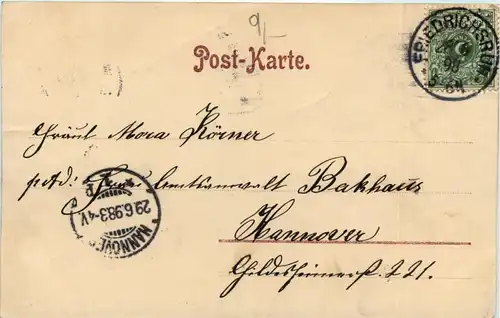 9/-
Post-Karte.
FRIEDRICHSRUH
98
Fräul Mora Körner
p. Ad: Amtsanwalt Bakhaus
Hannover
Hildesheimerstr. 221.
HANNOVER
29.6.98.3-4V.